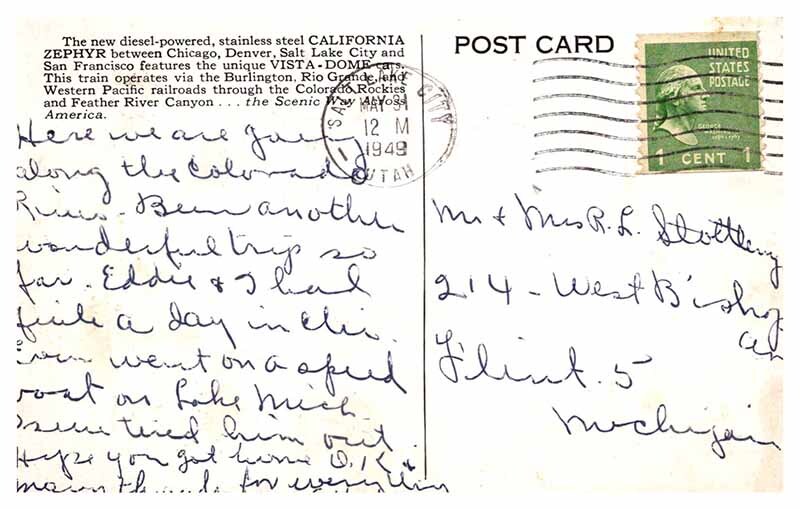 The new diesel-powered, stainless steel CALIFORNIA
ZEPHYR between Chicago, Denver, Salt Lake City and
San Francisco features the unique VISTA-DOME cars.
This train operates via the Burlington, Rio Grande and
Western Pacific railroads through the Colorado Rockies
and Feather River Canyon . . . the Scenic Way Across
America.
Here we are going
along the Colorado
River - Been another
wonderful trip so
far. Eddie & I had
quite a day in Chi.
Even went on a speed
boat on Lake Mich.
tired him out.
Hope you got home O.K. &
many thanks for everything
POST CARD
SALT LAKE CITY
MAY 31
12 M
1949
UTAH
UNITED
STATES
POSTAGE
GEORGE
WASHINGTON
1 CENT 1
Mr & Mrs R. L.
214 - West Bishop
Flint. 5
Michigan